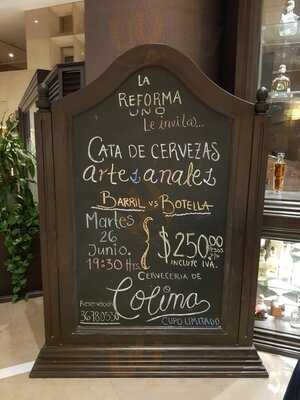 LA
REFORMA
UNO
Le invita...
CATA DE CERVEZAS
artesanales
BARRIL vs BOTELLA
Martes
26
Junio.
19:30 Hrs.
$250.00
INCLUYE IVA.
CERVECERIA DE
Colima
CUPO LIMITADO